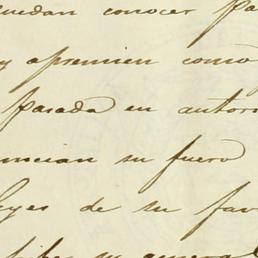 quedan conocer pa
y apremien como
pasada en autori
nuncian su fuero
leyes de su fav